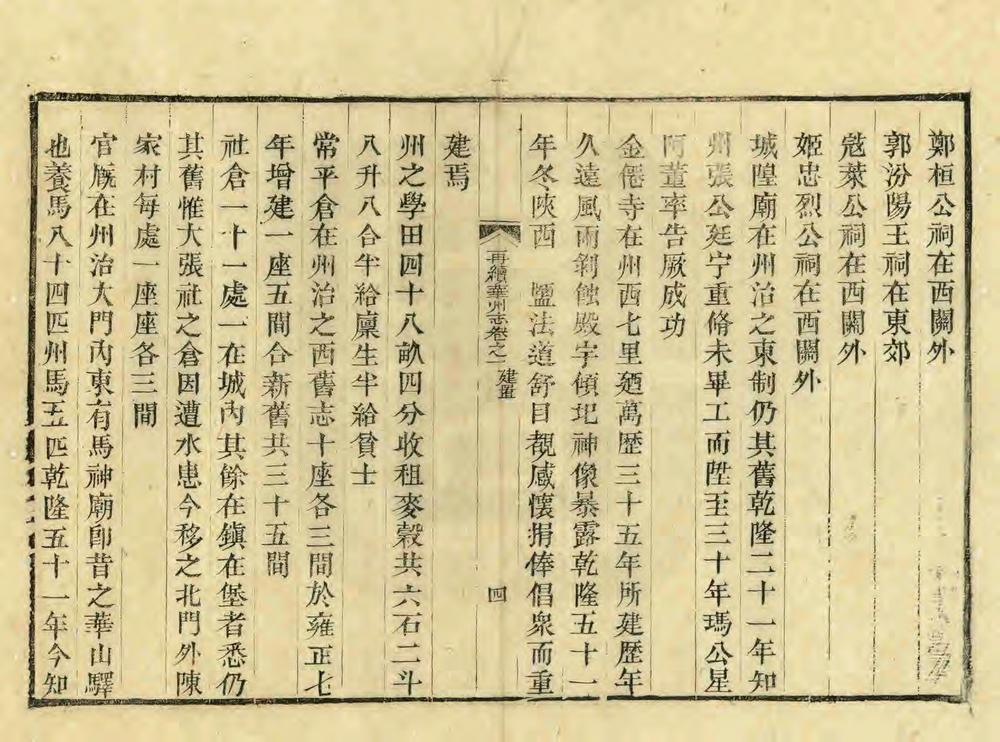 鄭桓公祠在西關外
郭汾陽王祠在東郊
冦萊公祠在西關外
姬忠烈公祠在西關外
城隍廟在州治之東制仍其舊乾隆二十一年知
州張公廷宁重脩未畢工而陞至三十年瑪公星
阿董率告厥成功
金僊寺在州西七里廼萬歷三十五年所建歷年
久遠風雨剝蝕殿宇傾圯神像暴露乾隆五十一
年冬陝西 鹽法道舒目覩感懷捐俸倡衆而重
再續華州志卷之一 建置 四
建焉
州之學田四十八畝四分收租麥穀共六石二斗
八升八合半給廩生半給貧士
常平倉在州治之西舊志十座各三間於雍正七
年增建一座五間合新舊共三十五間
社倉一十一處一在城內其餘在鎮在堡者悉仍
其舊惟大張社之倉因遭水患今移之北門外陳
家村每處一座座各三間
官厩在州治大門內東有馬神廟卽昔之華山驛
也養馬八十四匹州馬五匹乾隆五十一年今知